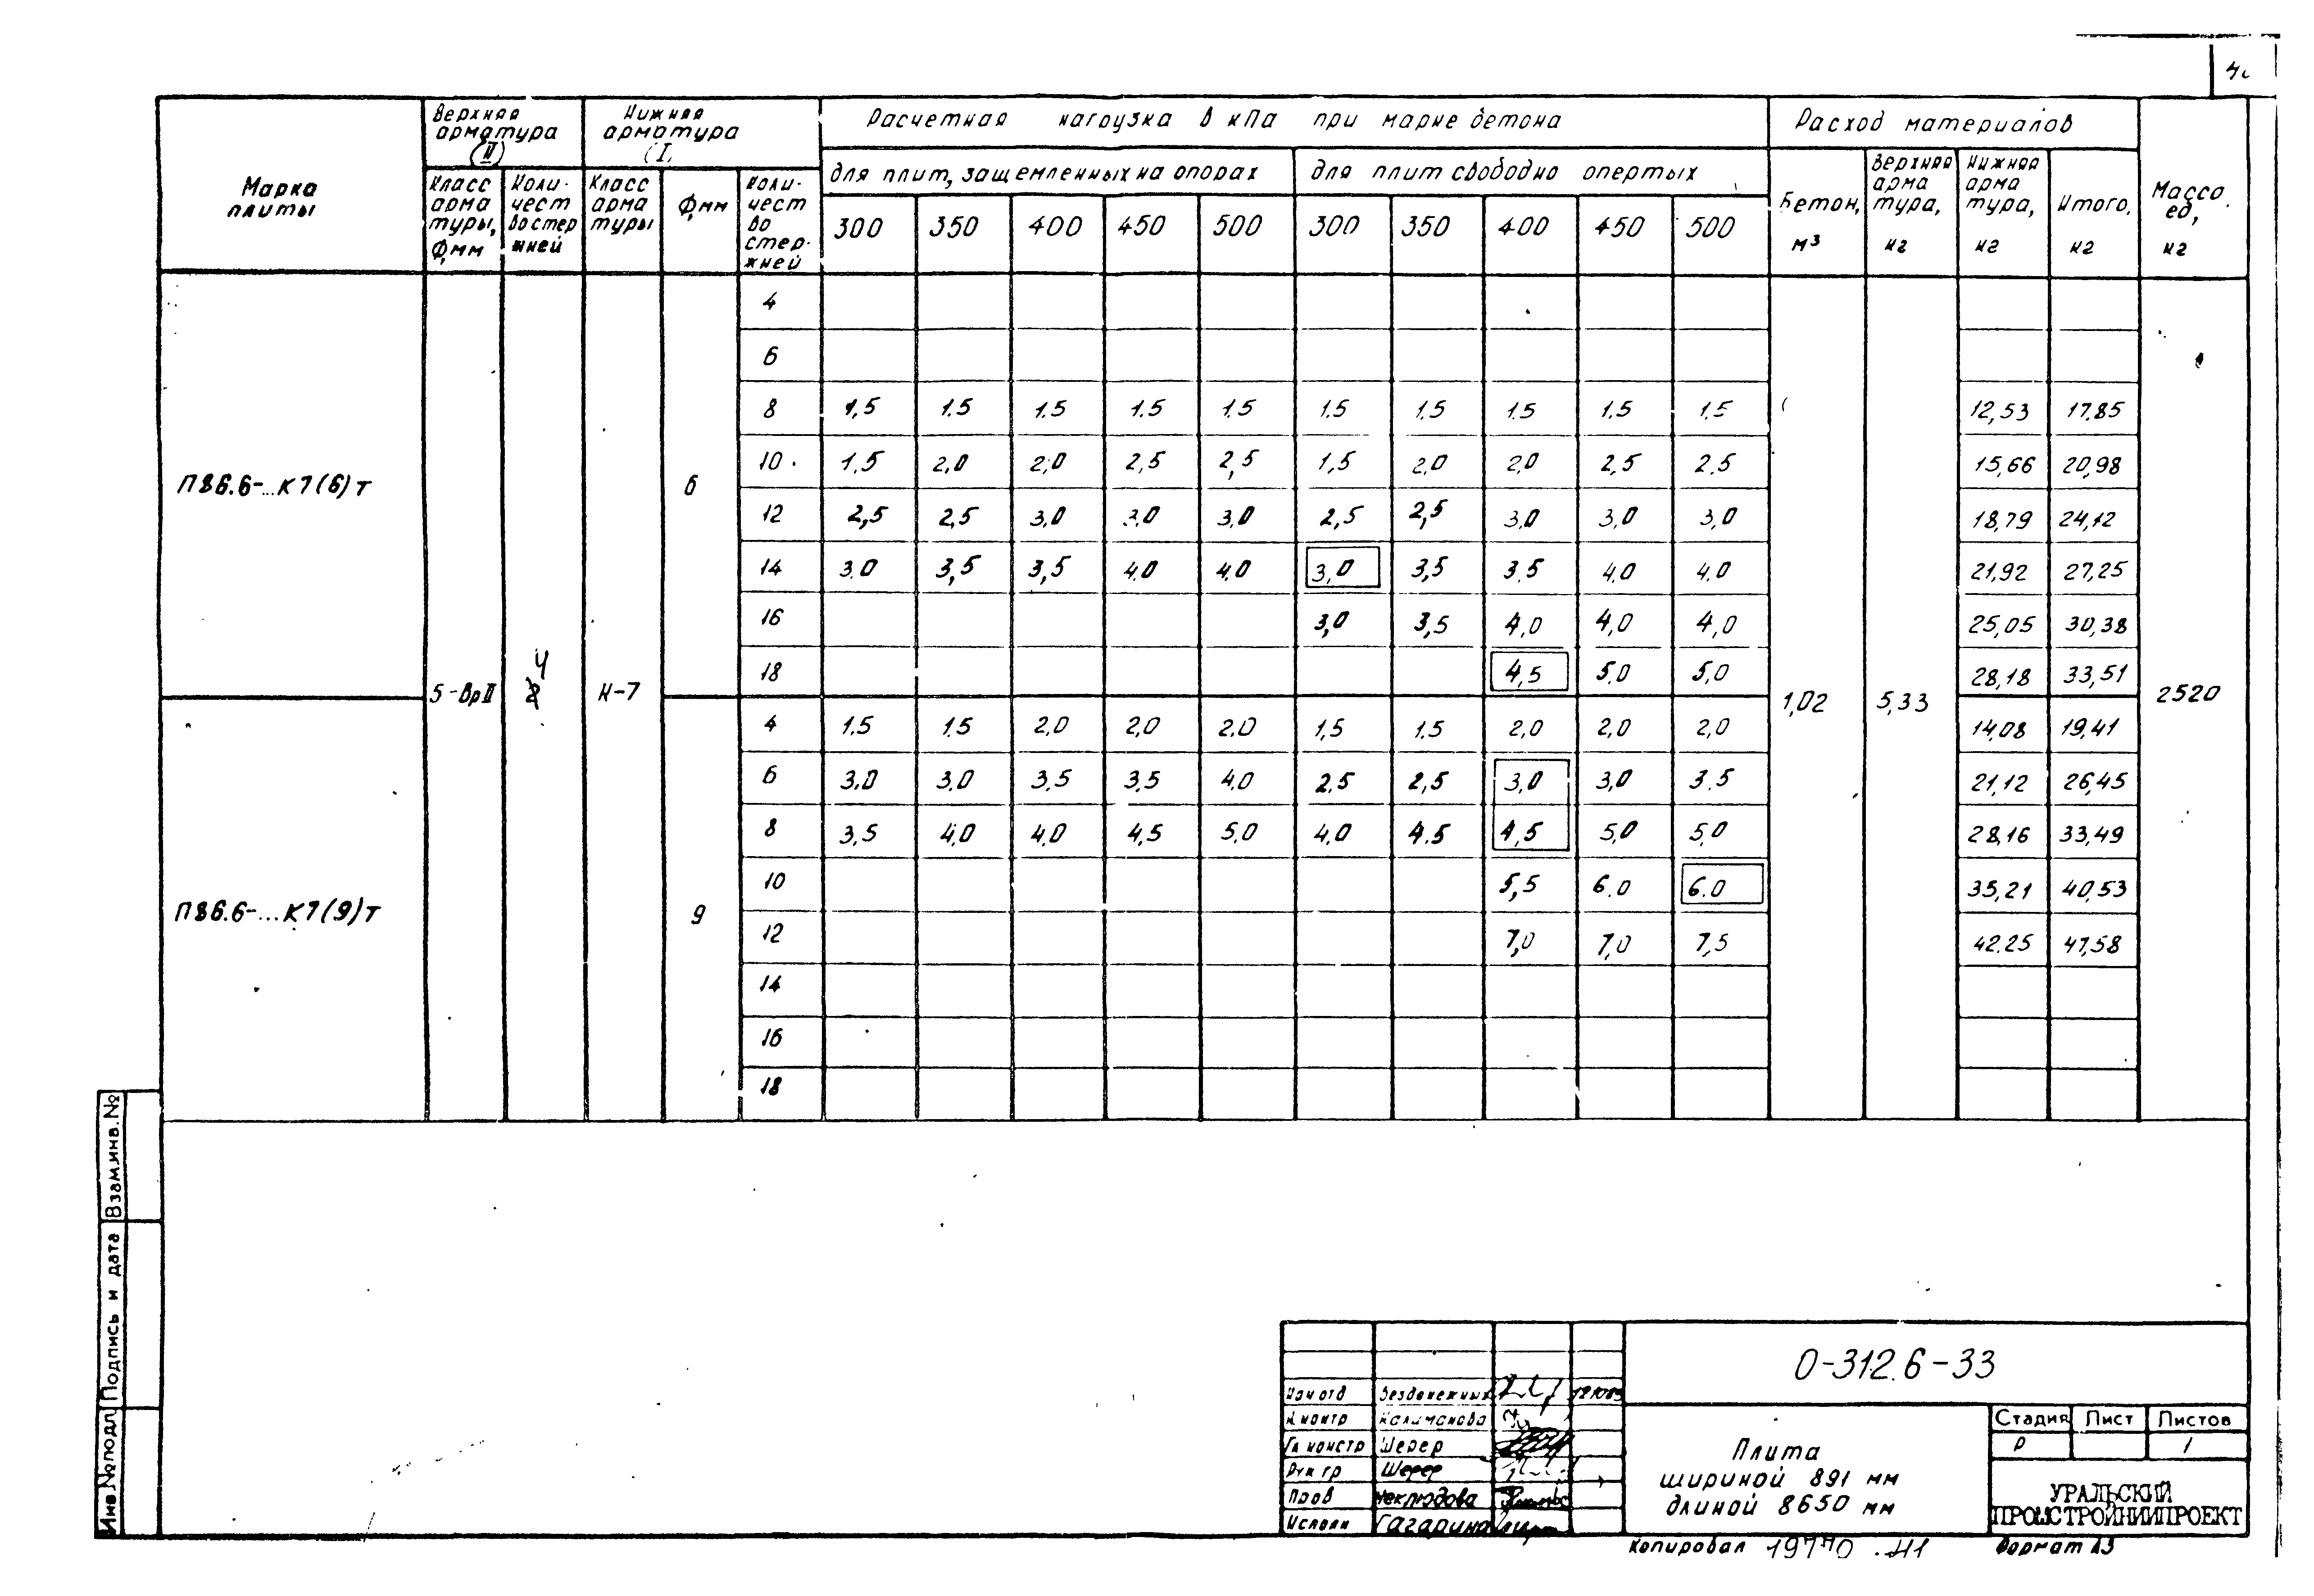 Марка плиты
Верхняя арматура (II)
Нижняя арматура (I)
Расчетная нагрузка в кПа при марке бетона
Расход материалов
Масса ед, кг
Класс арматуры, Ф,мм
Количество стержней
Класс арматуры
Ф,мм
Количество стержней
для плит, защемленных на опорах
для плит свободно опертых
Бетон, м³
Верхняя арматура, кг
Нижняя арматура, кг
Итого, кг
300 350 400 450 500 300 350 400 450 500
П86.6-...К7(6)т
5-ВрII
4
К-7
6
1,02
5,33
2520
4
6
8 1,5 1.5 1.5 1.5 1.5 1.5 1.5 1.5 1.5 1.5 12,53 17,85
10 1,5 2,0 2,0 2,5 2,5 1,5 2.0 2,0 2,5 2.5 15,66 20,98
12 2,5 2,5 3,0 3,0 3,0 2,5 2,5 3,0 3,0 3,0 18,79 24,12
14 3.0 3,5 3,5 4,0 4,0 3,0 3,5 3.5 4,0 4.0 21,92 27,25
16 3,0 3,5 4,0 4,0 4,0 25,05 30,38
18 4,5 5,0 5,0 28,18 33,51
П86.6-...К7(9)т
9
4 1.5 1.5 2,0 2,0 2,0 1,5 1.5 2,0 2,0 2,0 14,08 19,41
6 3,0 3,0 3,5 3,5 4,0 2.5 2,5 3,0 3,0 3.5 21,12 26,45
8 3,5 4,0 4,0 4,5 5,0 4,0 4.5 4,5 5,0 5,0 28,16 33,49
10 5,5 6.0 6.0 35,21 40,53
12 7,0 7,0 7,5 42.25 47,58
14
16
18
Взам.инв.№
Подпись и дата
Инв №подл
О-312.6-33
Нач отд Безденежных
Н.контр Калиманова
Гл констр Шерер
Рук гр Шерер
Пров Неклюдова
Исполн Гагарина
Плита
шириной 891 мм
длиной 8650 мм
Стадия Лист Листов
Р 1
УРАЛЬСКИЙ
ПРОМСТРОЙНИИПРОЕКТ
Копировал 19770 41 Формат А3